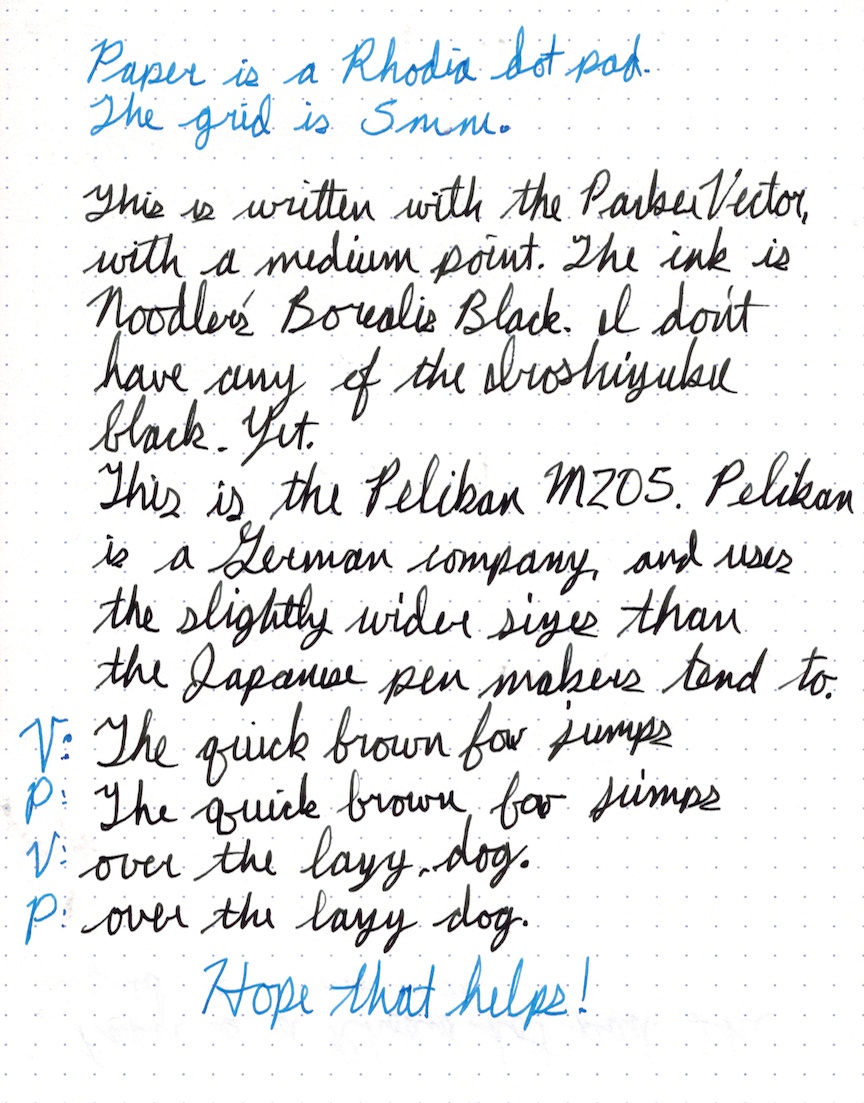 Paper is a Rhodia dot pad.
The grid is 5mm.
This is written with the Parker Vector,
with a medium point. The ink is
Noodler's Borealis Black. I don't
have any of the Iroshizuku
black. Yet.
This is the Pelikan M205. Pelikan
is a German company, and uses
the slightly wider sizes than
the Japanese pen makers tend to.
V: The quick brown fox jumps
P: The quick brown fox jumps
V: over the lazy dog.
P: over the lazy dog.
Hope that helps!